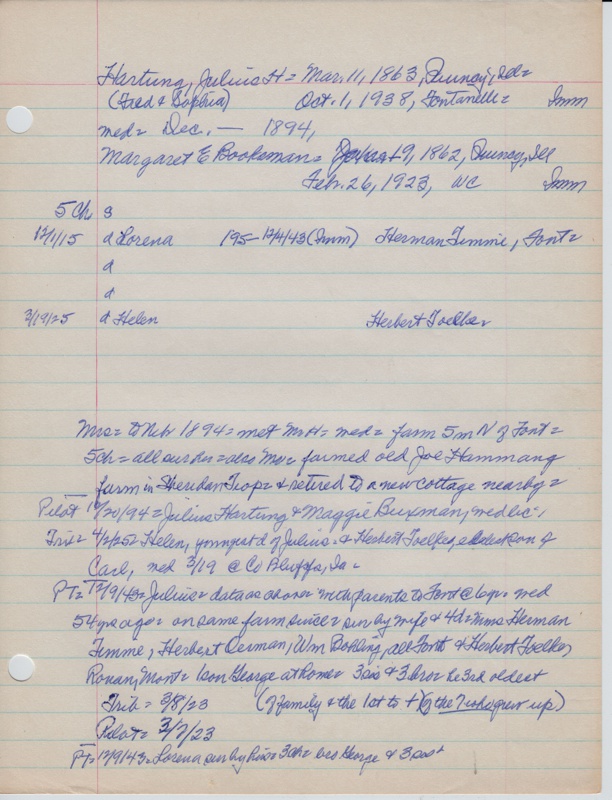 Hartung, Julius H = Mar. 11, 1863, Quincy, Ill =
(Fred & Sophia) Oct. 1, 1938, Fontanelle = Imm
med = Dec. — 1894,
Margaret E Bookeman = 19, 1862, Quincy, Ill
Feb. 26, 1923, WC Imm
5 Ch s
12/1/15 d Lorena 195- 12/4/43 (Imm) Herman Timme, Font =
d
d
3/19/25 d Helen Herbert Toelker
Mrs = to Nebr 1894 = met Mr H = med = farm 5 m N of Font =
5 Ch = all sur der = also Mr = farmed old Joe Hammang
farm in Sheridan Twp = & retired to a new cottage nearby =
Pilot 12/20/94 = Julius Hartung & Maggie Buxman, med Dec
Trib = 4/2/25 = Helen, youngest d of Julius & Herbert Toelker, eldest son of
Carl, med 3/19 @ Co Bluffs, Ia =
PT = 12/9/43 = Julius = data as above with parents to Font @ 6 yr = med
54 yrs ago = on same farm since = sur by wife & 4 d = Mms Herman
Timme, Herbert Oerman, Wm Bolling, all Font & Herbert Toelker
Ronan, Mont = 1 son George at home = 3 sis & 3 bros he 3rd oldest
Trib = 3/8/23 (of family & the 1st to + (of the who grew up)
Pilot = 3/7/23
PT = 12/9/43 = Lorena sur by hus = 3 ch = bro George & 3 sis +